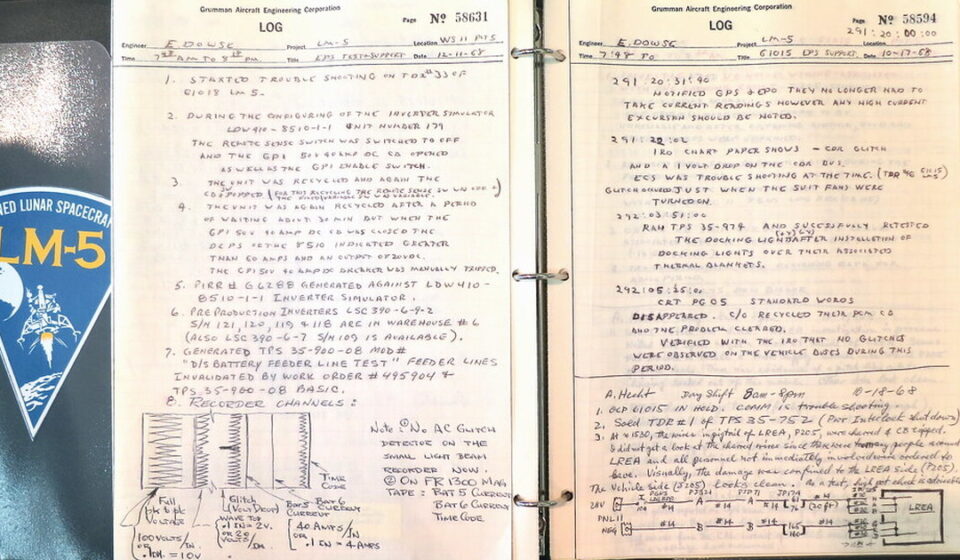 NED LUNAR SPACECRA
LM-5
Grumman Aircraft Engineering Corporation
LOG
Page Nº 58631
Engineer E. DOWSE Project LM-5 Location WS 11 PT5
Time 7 AM TO 8 PM Title EPS TEST SUPPORT Date 12-11-68
1. STARTED TROUBLE SHOOTING ON TDR #33 OF
61018 LM 5.
2. DURING THE CONFIGURING OF THE INVERTER SIMULATOR
LDW 410-8510-1-1 UNIT NUMBER 179
THE REMOTE SENSE SWITCH WAS SWITCHED TO OFF
AND THE GPI 50V 40 AMP DC CB OPENED
AS WELL AS THE GPI ENABLE SWITCH.
3. THE UNIT WAS RECYCLED AND AGAIN THE
CB POPPED (FOR THIS RECYCLING THE REMOTE SENSE SW WAS
4. THE UNIT WAS AGAIN RECYCLED AFTER A PERIOD
OF WAITING ABOUT 30 MIN BUT WHEN THE
GPI 50V 40 AMP DC CB WAS CLOSED THE
OF THE 8510 INDICATED GREATER
THAN 60 AMPS AND AN OUTPUT OF 20VDC.
THE GPI 50V 40 AMP DC BREAKER WAS MANUALLY TRIPPED.
5. PIRR # G6288 GENERATED AGAINST LDW 410-
8510-1-1 INVERTER SIMULATOR.
6. PREPRODUCTION INVERTERS LSC 390-6-9-2
S/N 121, 120, 119 & 118 ARE IN WAREHOUSE #6
(ALSO LSC 390-6-7 S/N 109 IS AVAILABLE).
7. GENERATED TPS 35-900-08 MOD #
"D/S BATTERY FEEDER LINE TEST" FEEDER LINES
INVALIDATED BY WORK ORDER #495904 &
TPS 35-900-08 BASIC.
8. RECORDER CHANNELS:
Note: ① No AC GLITCH
DETECTOR ON THE
SMALL LIGHT BEAM
RECORDER NOW.
② ON FR 1300 MAG
TAPE: BAT 5 CURRENT
BAT 6 CURRENT
TIME CODE
TIME CODE
Full pk to pk VOLTAGE
Glitch (VOLT DROP)
BAT 5 CURRENT
BAT 6 CURRENT
100 VOLTS/IN.
.1 IN. = 10V
.1 IN = 2V.
OR 20 VOLTS/IN.
40 AMPS/IN
OR
.1 IN = 4 AMPS
Grumman Aircraft Engineering Corporation
LOG
Page Nº 58594
291:20:00:00
Engineer E. DOWSE Project LM-5 Location
Time 7:48 TO Title 61015 EPS SUPPORT Date 10-17-68
291:20:31:40
NOTIFIED GPS & EPO THEY NO LONGER HAD TO
TAKE CURRENT READINGS HOWEVER ANY HIGH CURRENT
EXCURSION SHOULD BE NOTED.
291:22:02
IRO CHART PAPER SHOWS - CDR GLITCH
AND A 1 VOLT DROP ON THE CDR BUS.
ECS WAS TROUBLE SHOOTING AT THE TIME. (TDR 61015 LM5)
GLITCH OCCURED JUST WHEN THE SUIT FANS WERE
TURNED ON.
292:03:51:00
RAN TPS 35-974 AND SUCESSFULLY RETESTED
THE DOCKING LIGHTS AFTER INSTALLATION OF
DOCKING LIGHTS OVER THEIR ASSOCIATED
THERMAL BLANKETS.
292:05:15:0
CRT PG 05 STANDARD WORDS
DISAPPEARED. C/O RECYCLED THEIR PCM CB
AND THE PROBLEM CLEARED.
VERIFIED WITH THE IRO THAT NO GLITCHES
WERE OBSERVED ON THE VEHICLE BUSES DURING THIS
PERIOD.
A. Hecht Day Shift 8am - 8pm 10-18-68
1. OCP 61015 IN HOLD. COMM is trouble shooting
2. Sold TDR #1 of TPS 35-752 (Pwr Interlock shut down)
3. At ≈1530, the wires in pigtail of LREA, P205, were shared & CB tripped.
I did not get a look at the shared wires since there were many people around
LREA and all personnel not immediately involved were ordered to
leave. Visually, the damage was confined to the LREA side (P205).
The vehicle side (J205) Looks clean. As a test, high pot check is advisable
28V
PNL 11
NEG
#14 A #14 A #14
#14 B #14 B #14
LREA